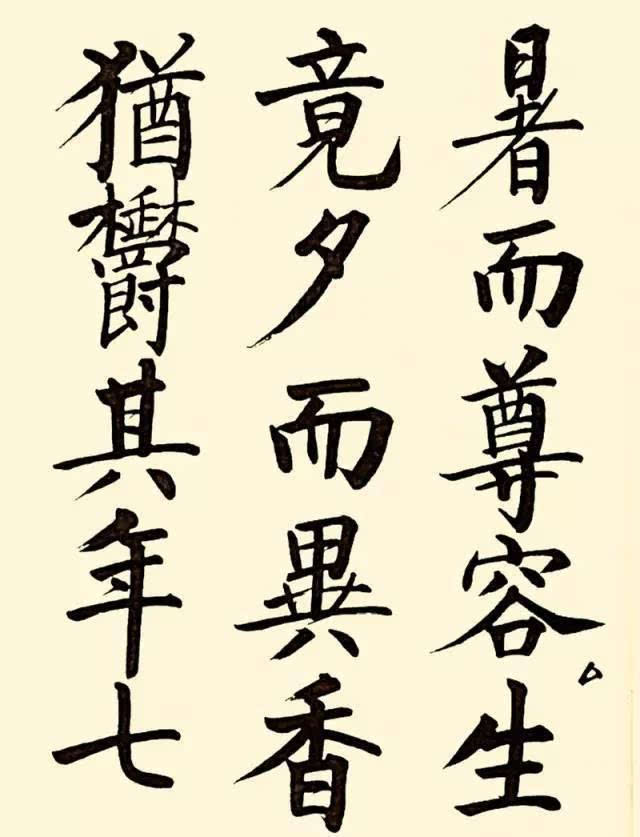 暑而尊容生
竟夕而異香
猶鬱其年七